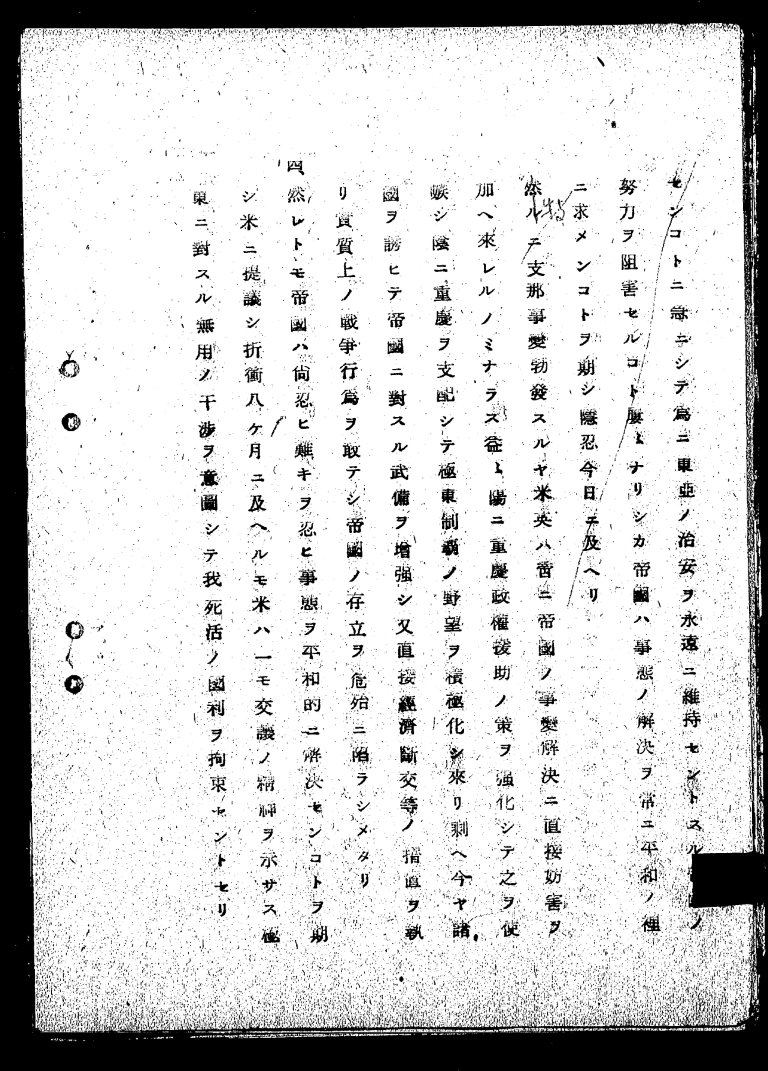 センコトニ急ニシテ爲ニ東亞ノ治安ヲ永遠ニ維持セントスルノ
努力ヲ阻害セルコト屢〻ナリシカ帝國ハ事態ノ解決ヲ常ニ平和ノ裡
ニ求メンコトヲ期シ隱忍今日ニ及ヘリ
然ルニ支那事變勃發スルヤ米英ハ啻ニ帝國ノ事變解決ニ直接妨害ヲ
加ヘ來レルノミナラス益〻陽ニ重慶政權援助ノ策ヲ强化シテ之ヲ使
嗾シ陰ニ重慶ヲ支配シテ極東制覇ノ野望ヲ積極化シ來リ剩ヘ今ヤ諸
國ヲ誘ヒテ帝國ニ對スル武備ヲ增强シ又直接經濟斷交等ノ措置ヲ執
リ實質上ノ戰爭行爲ヲ敢テシ帝國ノ存立ヲ危殆ニ陷ラシメタリ
四、然レトモ帝國ハ尙忍ヒ難キヲ忍ヒ事態ヲ平和的ニ解決センコトヲ期
シ米ニ提議シ折衝八ケ月ニ及ヘルモ米ハ一モ交讓ノ精神ヲ示サス極
東ニ對スル無用ノ干渉ヲ意圖シテ我死活ノ國利ヲ拘束セントセリ